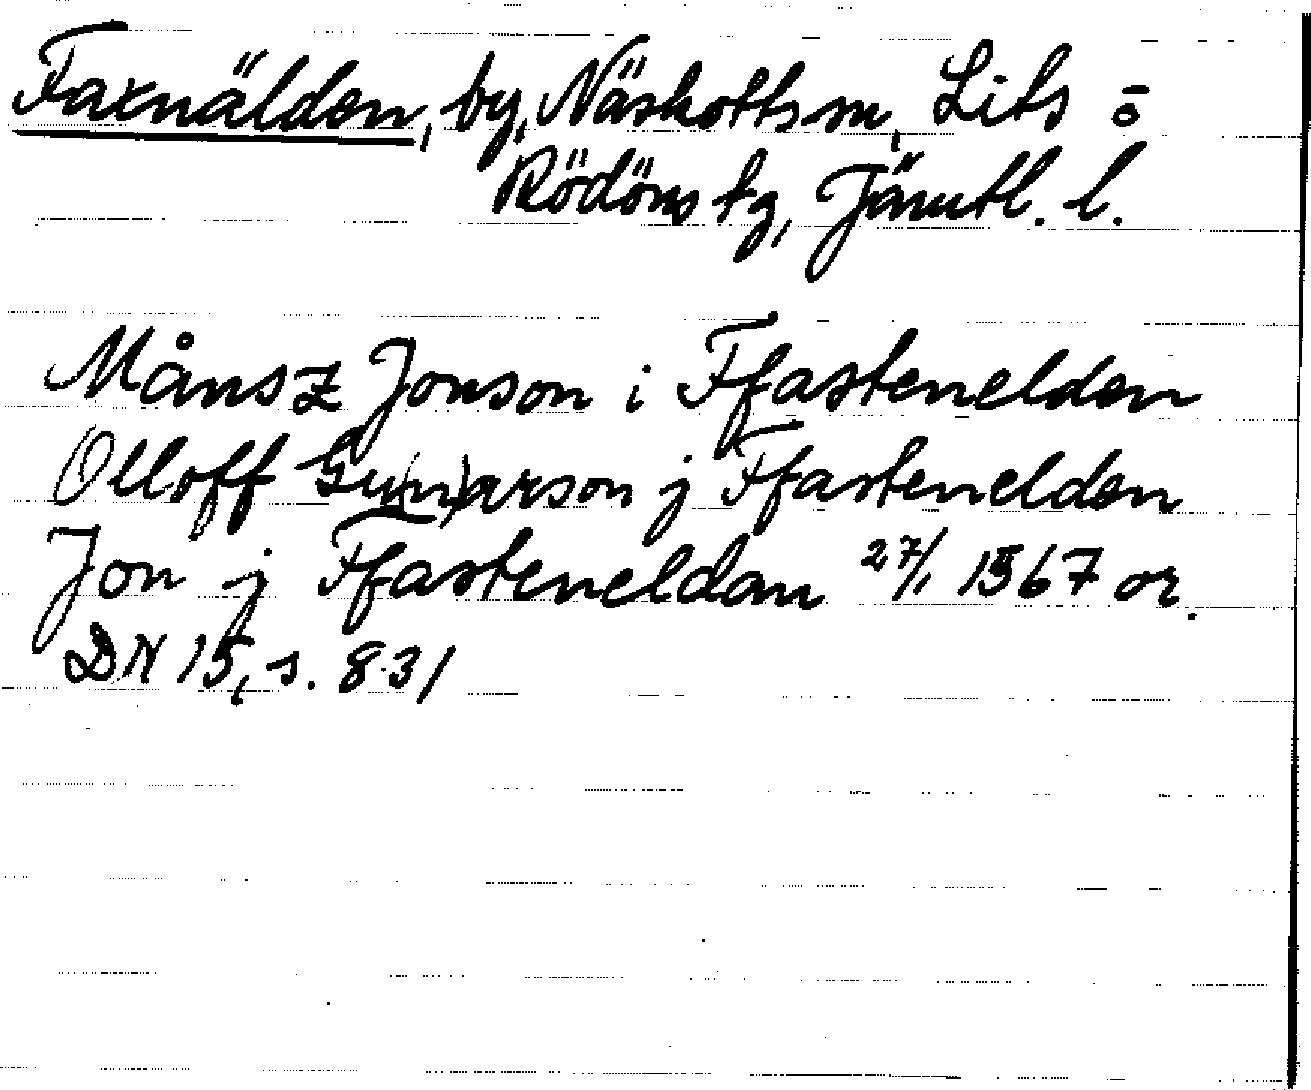 Faxnälden, by, Näskotts sn, Lits o
Rödöns tg, Jämtl. l.
Månsz Jonson i Ffastenelden
Olloff Gu(n)arson j Ffastenelden
Jon j Ffasteneldan 27/1 1567 or.
DN 15, s. 831